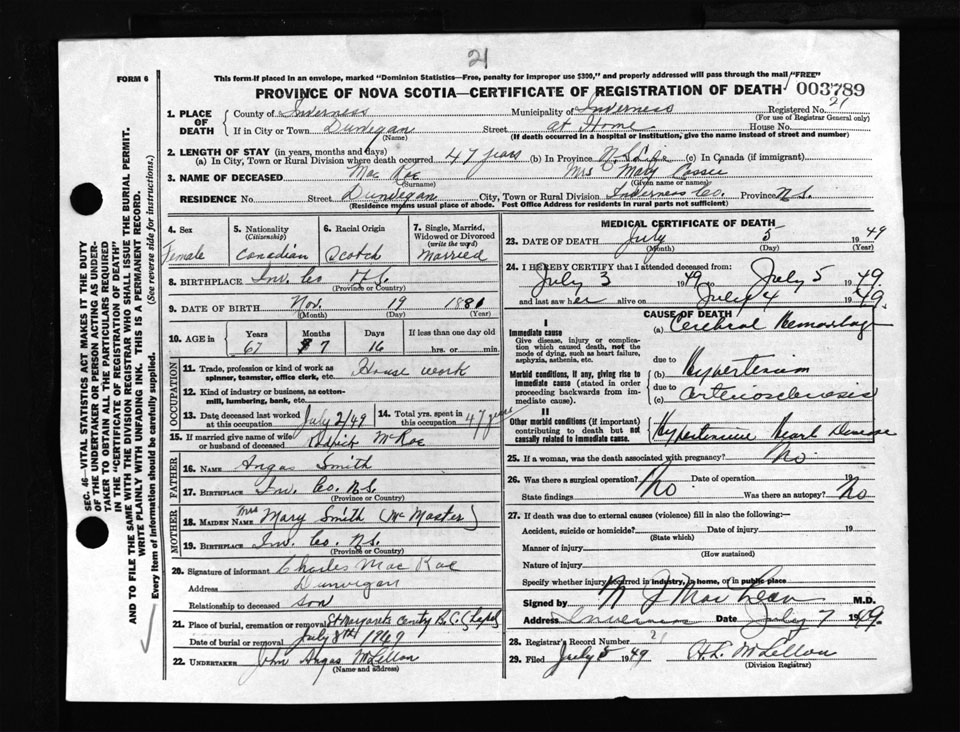 21
FORM 6
This form if placed in an envelope, marked "Dominion Statistics—Free, penalty for improper use $300," and properly addressed will pass through the mail "FREE"
PROVINCE OF NOVA SCOTIA—CERTIFICATE OF REGISTRATION OF DEATH 003789
1. PLACE OF DEATH County of Inverness Municipality of Inverness Registered No. 21
(For use of Registrar General only)
If in City or Town Dunvegan Street at Home House No.
(Name) (If death occurred in a hospital or institution, give the name instead of street and number)
2. LENGTH OF STAY (in years, months and days)
(a) In City, Town or Rural Division where death occurred 47 years (b) In Province N.S. Life (c) In Canada (if immigrant)
3. NAME OF DECEASED Mac Rae Mrs Mary Cassie
(Surname) (Given name or names)
RESIDENCE No. Dunvegan City, Town or Rural Division Inverness Co. Province N.S.
(Residence means usual place of abode. Post Office Address for residents in rural parts not sufficient)
4. Sex Female
5. Nationality (Citizenship) Canadian
6. Racial Origin Scotch
7. Single, Married, Widowed or Divorced (write the word) Married
8. BIRTHPLACE Inv. Co N.S.
(Province or Country)
9. DATE OF BIRTH Nov. 19 1881
(Month) (Day) (Year)
10. AGE in Years 67 Months 7 Days 16 If less than one day old
hrs. or min.
OCCUPATION
11. Trade, profession or kind of work as spinner, teamster, office clerk, etc. House work
12. Kind of industry or business, as cotton-mill, lumbering, bank, etc.
13. Date deceased last worked at this occupation July 2/49
14. Total yrs. spent in this occupation 47 years
15. If married give name of wife or husband of deceased McRae
FATHER
16. NAME Angas Smith
17. BIRTHPLACE Inv. Co. N.S.
(Province or Country)
MOTHER
18. MAIDEN NAME Mrs Mary Smith (McMaster)
19. BIRTHPLACE Inv. Co. N.S.
(Province or Country)
20. Signature of informant Charles Mac Rae
Address Dunvegan
Relationship to deceased son
21. Place of burial, cremation or removal St Margarets
Date of burial or removal July 8th 1949
22. UNDERTAKER Angas McLellan
(Name and address)
MEDICAL CERTIFICATE OF DEATH
23. DATE OF DEATH July 5 1949
(Month) (Day) (Year)
24. I HEREBY CERTIFY that I attended deceased from
July 3 1949 to July 5 1949
and last saw her alive on July 4 1949
CAUSE OF DEATH
I
Immediate cause
Give disease, injury or complication which caused death, not the mode of dying, such as heart failure, asphyxia, asthenia, etc.
(a) Cerebral Hemorrhage
due to
Morbid conditions, if any, giving rise to immediate cause (stated in order proceeding backwards from immediate cause).
(b) Hypertension
due to
(c) Arteriosclerosis
II
Other morbid conditions (if important) contributing to death but not causally related to immediate cause.
Hypertensive Heart Disease
25. If a woman, was the death associated with pregnancy? No.
26. Was there a surgical operation? No. Date of operation 19
State findings Was there an autopsy? No
27. If death was due to external causes (violence) fill in also the following:
Accident, suicide or homicide? Date of injury 19
(State which)
Manner of injury
(How sustained)
Nature of injury
Specify whether injury occurred in industry, in home, or in public place
Signed by N J MacLean M.D.
Address Inverness Date July 7 1949
28. Registrar's Record Number 21
29. Filed July 5 1949 A.L. McLellan
(Division Registrar)
SEC. 46—VITAL STATISTICS ACT MAKES IT THE DUTY
OF THE UNDERTAKER OR PERSON ACTING AS UNDERTAKER TO OBTAIN ALL THE PARTICULARS REQUIRED
IN THE "CERTIFICATE OF REGISTRATION OF DEATH"
AND TO FILE THE SAME WITH THE DIVISION REGISTRAR WHO SHALL ISSUE THE BURIAL PERMIT.
WRITE PLAINLY WITH UNFADING INK. THIS IS A PERMANENT RECORD.
Every item of information should be carefully supplied. (See reverse side for instructions.)